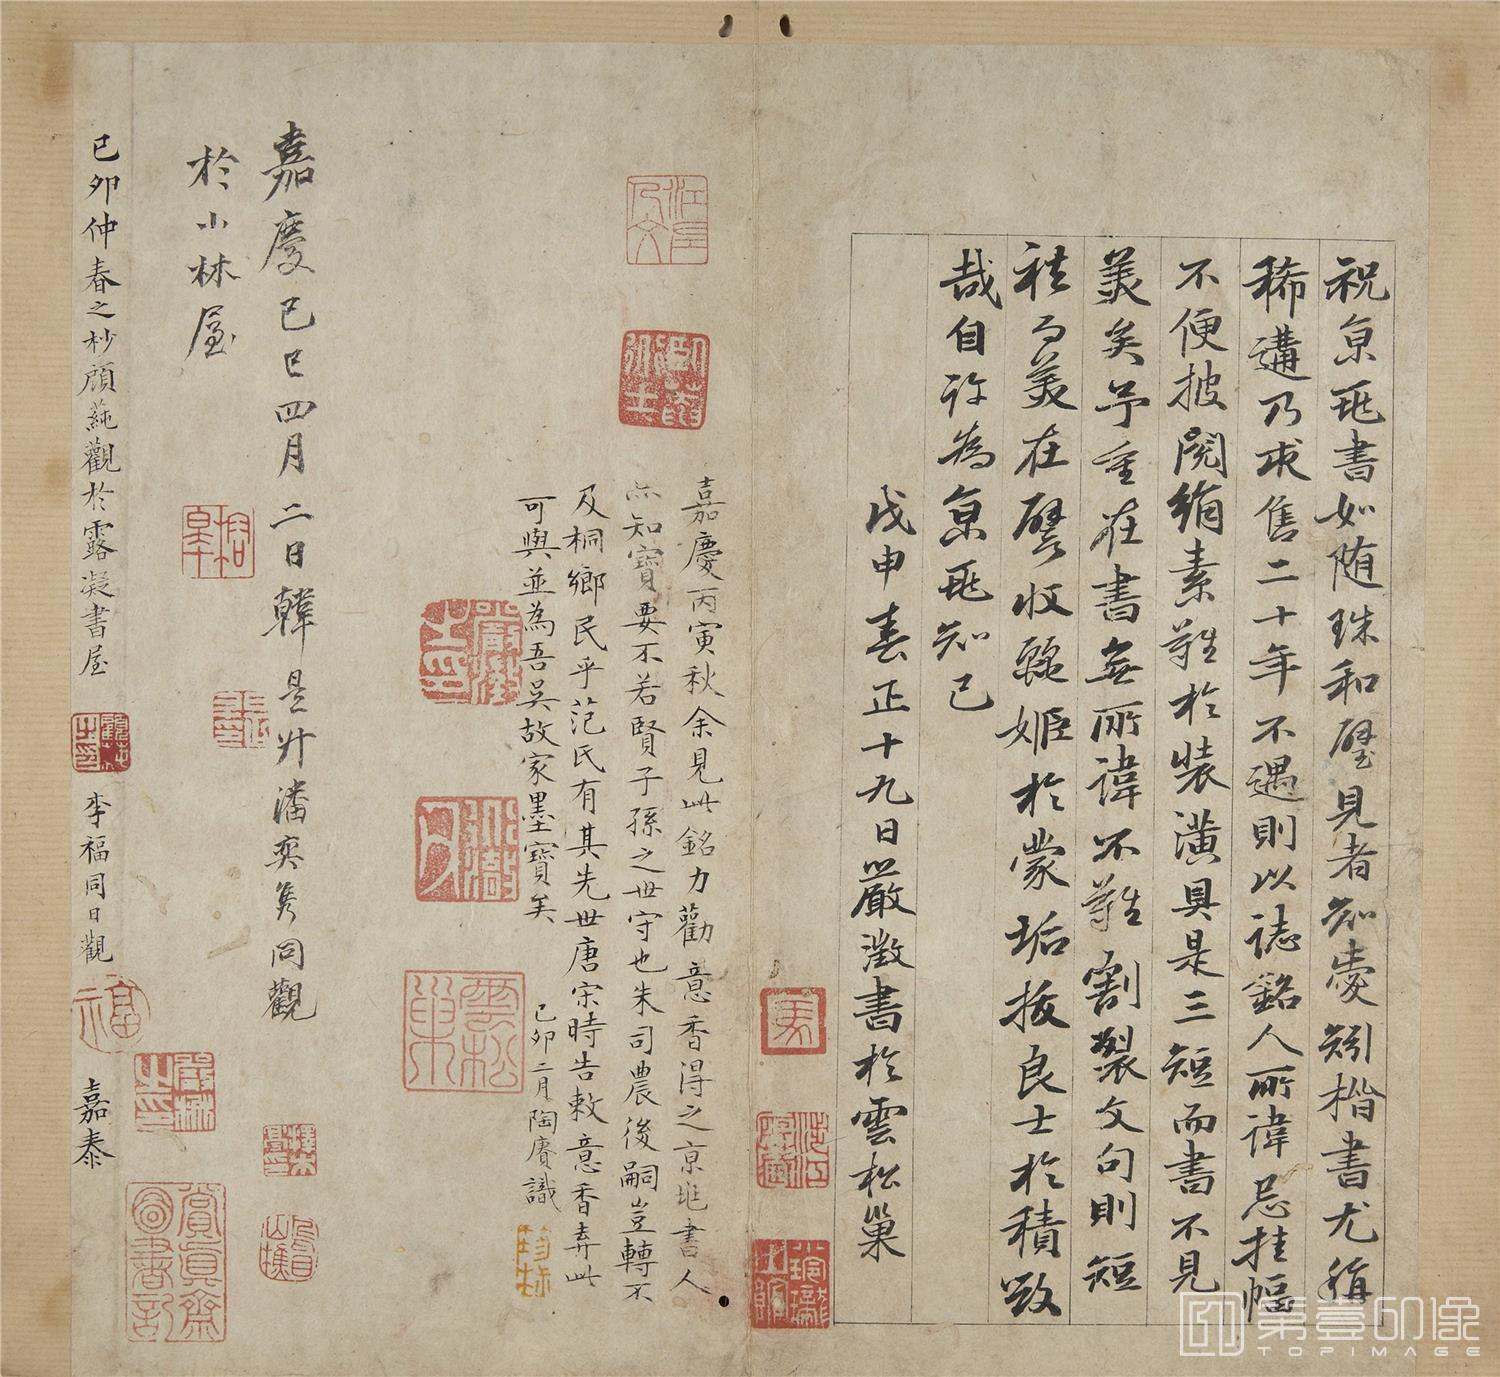 祝京兆書如随珠和璧見者知愛矧楷書尤稱
稀遘乃求售二十年不遇則以誌銘人所諱忌挂幅
不便披閱绢素難於裝潢具是三短而書不見
美矣予重在書無所諱不難割裂文句則短
袪而美在譬收麗姬於蒙垢拔良士於積毀
哉自許為京兆知己
戊申春正十九日嚴澂書於雲松巢
嘉慶丙寅秋余見此銘力勸意香得之京兆書人
亦知寶要不若賢子孫之世守也朱司農後嗣豈轉不
及桐鄉民乎范氏有其先世唐宋時告敕意香弆此
可與並為吾吴故家墨寶矣
己卯二月陶賡識
嘉慶己巳四月二日韓是升潘奕隽同觀
於小林屋
己卯仲春之杪顧蒓觀於露凝書屋
李福同日觀
嘉泰
雲松巢
賞真齋圖書記
福
第壹印像
TOPIMAGE